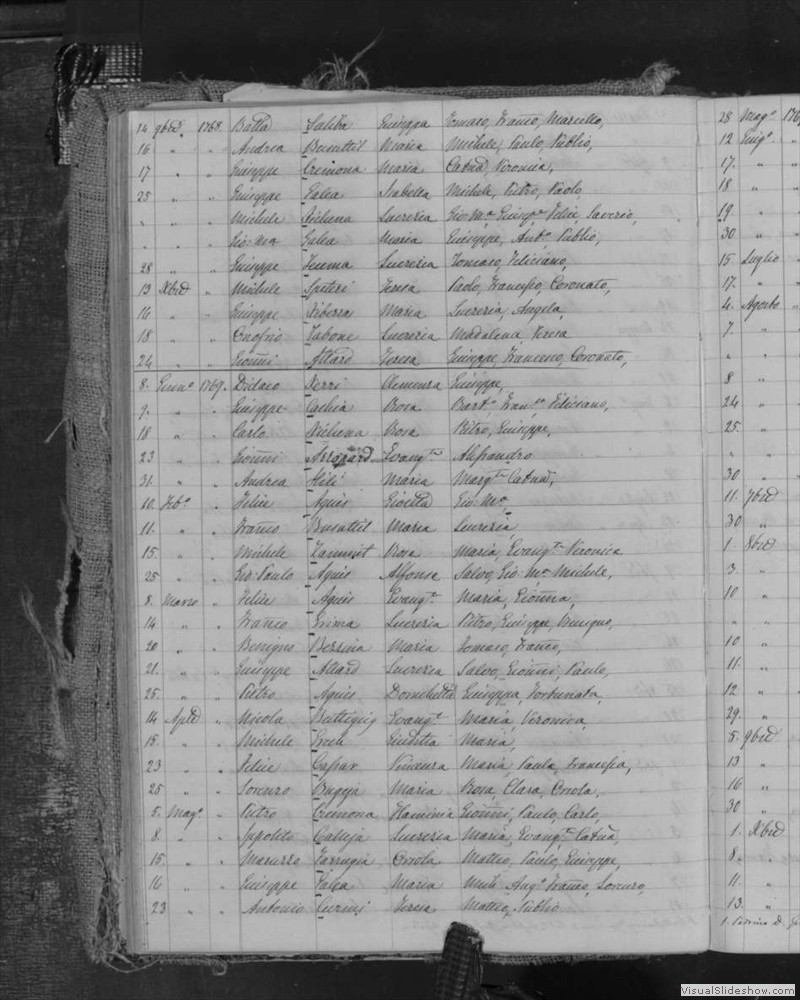 14 9bre 1768 Batta Saliba Giuseppa Tomaso, Franco, Marcello,
16 " " Andrea Busuttil Maria Michele, Paulo, Publio,
17 " " Giuseppe Cremona Maria Catna, Veronica,
25 " " Giuseppe Galea Isabella Michele, Pietro, Paolo,
" " " Michele Lucrezia Gio: Ma Giuspe Felice, Saverio,
" " " Gio: Ma Galea Maria Giuseppe, Anto Publio,
28 " " Giuseppe Lucrezia Tomaso, Feliciano,
13 Xbre " Michele Spiteri Teresa Paolo, Francesco, Coronato,
16 " " Giuseppe Maria Lucrezia, Angela,
18 " " Onofrio Zabone Lucrezia Madalena, Teresa
24 " " Gionni Attard Teresa Giuseppe, Francesco, Coronato,
8 Genno 1769 Didaco Clemenza Giuseppe,
9 " " Giuseppe Cachia Rosa Barto Franco Feliciano,
18 " " Carlo Rosa Pietro, Giuseppe,
23 " " Gionni Evangta Alessandro
31 " " Andrea Maria Margta Catna,
10 Febo " Felice Agius Gioella Gio: Ma
11 " " Franco Busuttil Maria Lucrezia
15 " " Michele Zammit Rosa Maria, Evangta Veronica
25 " " Gio: Paulo Agius Alfonsa Salvo, Gio: Ma Michele,
8 Marzo " Felice Agius Evangta Maria, Gionna,
14 " " Franco Lucrezia Pietro, Giuseppe, Benigno,
20 " " Benigno Bezzina Maria Tomaso, Franco,
21 " " Giuseppe Attard Lucrezia Salvo, Gionni, Paulo,
25 " " Pietro Agius Domibella Giuseppa, Fortunata,
14 Aple " Nicola Buttigieg Evangta Maria, Veronica,
15 " " Michele Grech Giuditta Maria,
23 " " Felice Caspar Vincenza Maria, Paula, Francesca,
25 " " Lorenzo Bugeja Maria Rosa, Clara, Orsola,
5 Mago " Pietro Cremona Flaminia Gionni, Paulo, Carlo,
8 " " Ippolito Calleja Lucrezia Maria, Evangta Catna,
15 " " Maruzzo Farrugia Orsola Matteo, Paulo, Giuseppe,
16 " " Giuseppe Galea Maria Ango Franco, Lorenzo,
23 " " Antonio Teresa Matteo, Publio
28 Mago 1769
12 Giugo "
17 " "
18 "
19 "
30 "
15 Luglio "
17 "
4 Agosto "
7 "
" "
8 "
24 "
25 "
" "
30 "
11 7bre
30 "
1 8bre
3 "
10 "
" "
10 "
11 "
12 "
29 "
5 9bre
13 "
16 "
30 "
1 Xbre
8 "
11 "
13 "
VisualSlideshow.com